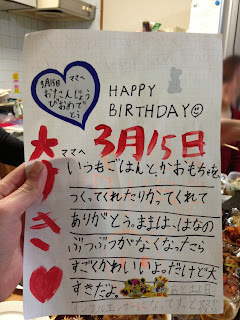 ママへ
3月15日
おたんじょう
びおめで
とう
HAPPY
BIRTHDAY☺
3月15日
大すき♥
ママへ
いつもごはんと、かおもちゃを、
つくってくれたりかってくれて
ありがとう。ままは、はなの
ぶつぶつがなくなったら
すごくかわいいよ。だけど大
すきだよ。